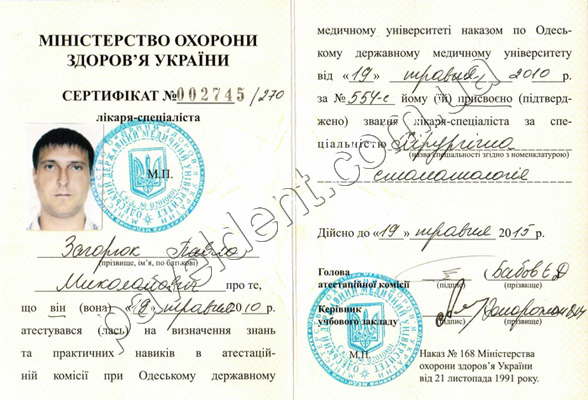 МІНІСТЕРСТВО ОХОРОНИ
ЗДОРОВ’Я УКРАЇНИ
СЕРТИФІКАТ № 002745 /270
лікаря-спеціаліста
М.П.
Загорюк Павло
(прізвище, ім’я, по батькові)
Миколайович про те,
що він (вона) «19» травня 2010 р.
атестувався (лась) на визначення знань
та практичних навиків в атестацій-
ній комісії при Одеському державному
медичному університеті наказом по Одесь-
кому державному медичному університету
від «19» травня 2010 р.
за № 554-с йому (їй) присвоєно (підтверд-
жено) звання лікаря-спеціаліста за спе-
ціальністю Хірургічна
(назва спеціальності згідно з номенклатурою)
стоматологія
Дійсно до «19» травня 2015 р.
Голова
атестаційної комісії Бабов Є Д
(підпис) (прізвище)
Керівник
учбового закладу
(підпис) (прізвище)
М.П.
Наказ № 168 Міністерства
охорони здоров’я України
від 21 листопада 1991 року.